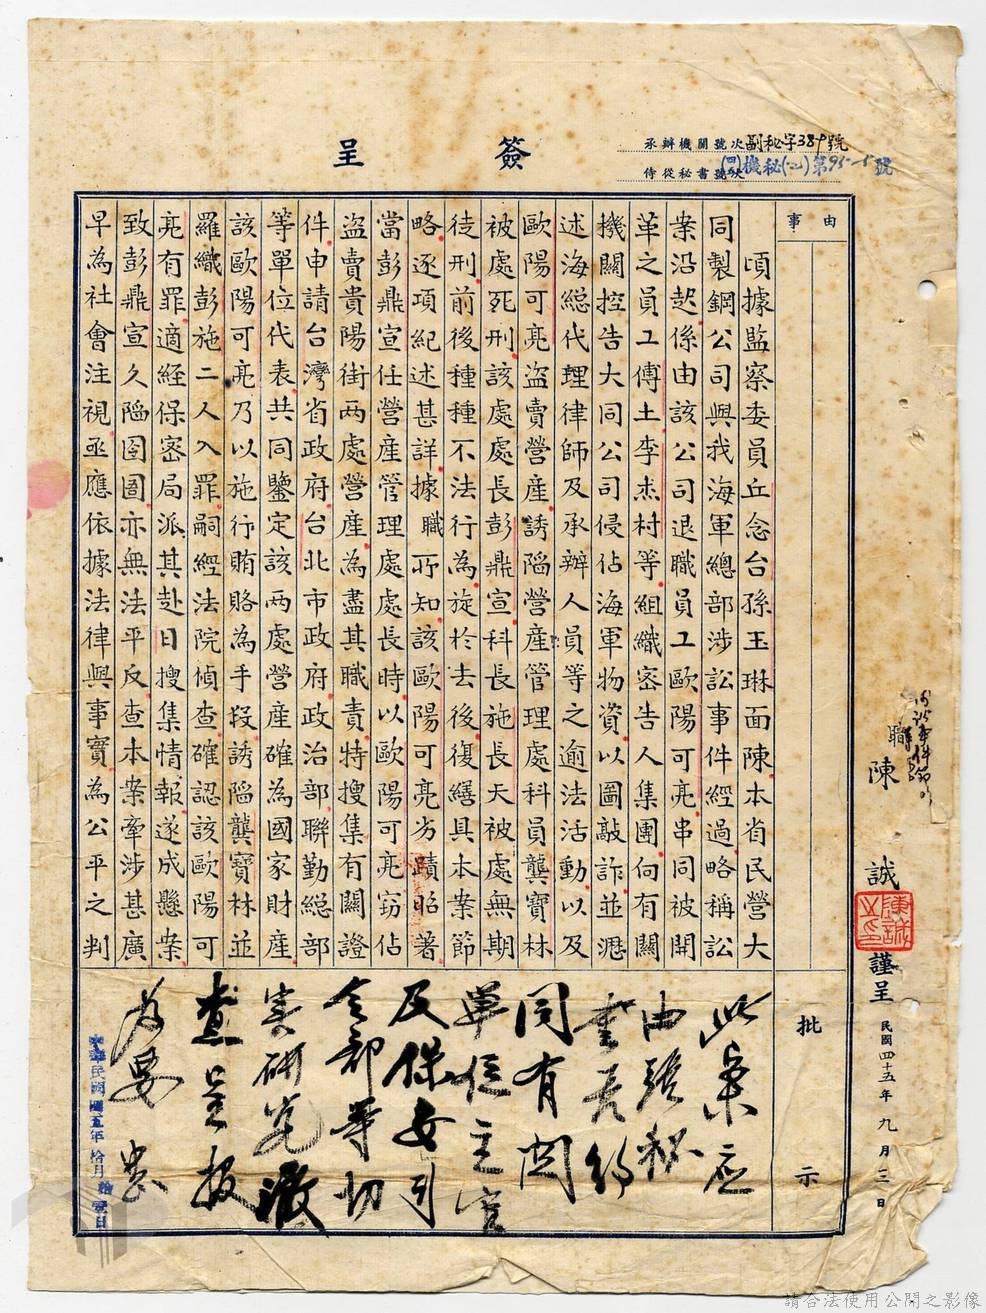 簽呈
承辦機關號次副秘字389號
侍從秘書號次機秘(乙)第95-5號
事由
頃據監察委員丘念台孫玉琳面陳本省民營大
同製鋼公司與我海軍總部涉訟事件經過略稱訟
案沿起係由該公司退職員工歐陽可亮串同被開
革之員工傅土李杰村等組織密告人集團向有關
機關控告大同公司侵佔海軍物資以圖敲詐並瀝
述海總代理律師及承辦人員等之逾法活動以及
歐陽可亮盜賣營產誘陷營產管理處科員龔寶林
被處死刑該處處長彭鼎宣科長施長天被處無期
徒刑前後種種不法行為旋於去後復繕具本案節
略逐項紀述甚詳據職所知該歐陽可亮劣蹟昭著
當彭鼎宣任營產管理處處長時以歐陽可亮窃佔
盜賣貴陽街两處營產為盡其職責特搜集有關證
件申請台灣省政府台北市政府政治部聯勤總部
等單位代表共同鑒定該两處營產確為國家財產
該歐陽可亮乃以施行賄賂為手段誘陷龔寶林並
羅織彭施二人入罪嗣經法院偵查確認該歐陽可
亮有罪適經保密局派其赴日搜集情報遂成懸案
致彭鼎宣久陷囹圄亦無法平反查本案牽涉甚廣
早為社會注視亟應依據法律與事實為公平之判
職陳誠
陳誠之印
謹呈
民國四十五年九月三日
批示
此案应
由張秘
書長約
同有関
單位主官
及保安司
令部等切
实研究澈
查呈报
为要
中華民國
年拾月拾壹日
請合法使用公開之影像